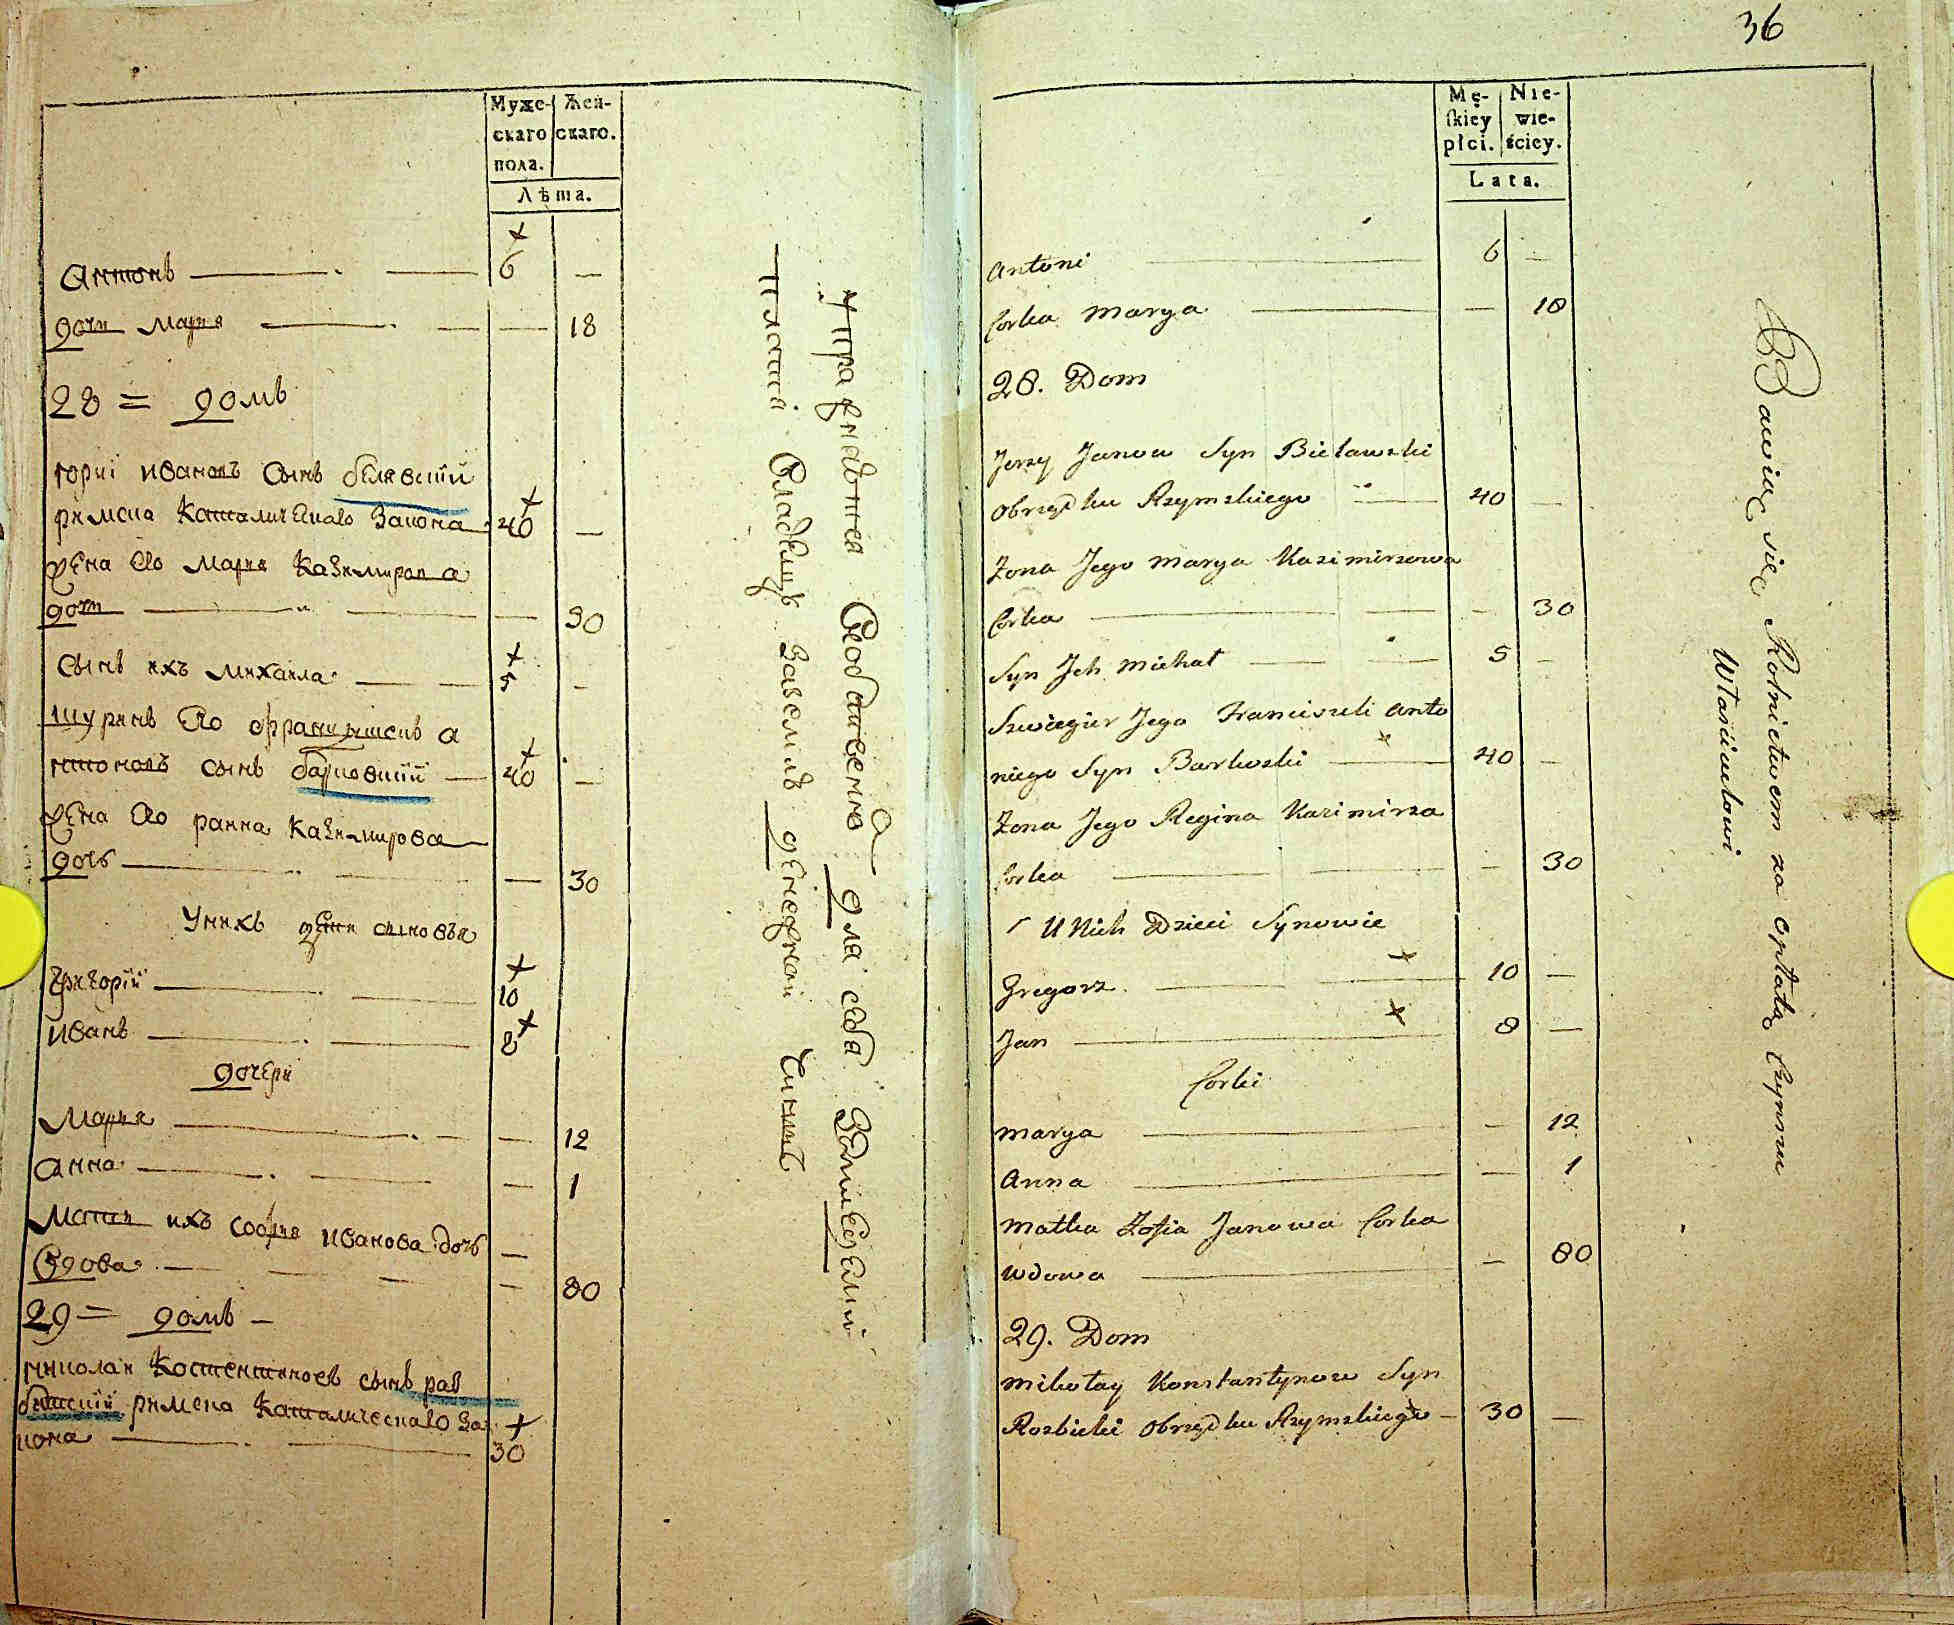 Муже-
скаго
пола.
Жен-
скаго.
Лѣта.
Антонъ 6 —
дочи Мария — 18
28 = домъ
Юриі Ивановъ Сынъ белявскиі
римска Католическаго Закона 40 —
жена Его Мария Казимирова
дочи — 30
Сынъ ихъ Михаила 5 —
шуринъ Его Францышекъ А
нтоновъ сынъ барковскиі 40 —
жена Его Казимирова
дочь — 30
У нихъ дети сыновья
Григориі 10
Иванъ 8
дочери
Мария — 12
Анна — 1
Мати ихъ София Иванова дочь —
Вдова — 80
29 = домъ —
Николаи Костентиновъ сынъ рав
бицскиі римска Католическаго За
кона 30
Упражняются для себя Земледелиі
платя Владельцу Заземлю денежной Чиншъ
36
Mę-
skiey
płci.
Nie-
wie-
ściey.
Lata.
Antoni 6 —
Corka Marya — 18
28. Dom
Jerzy Janow Syn Bielawski
Obrządku Rzymskiego 40 —
Zona Jego Marya Kazimirzowa
Corka — 30
Syn Jch Michał 5 —
Szwiegier Jego Franciszek Anto
niego Syn Barkoski 40 —
Zona Jego Regina Kazimirza
Corka — 30
U Nich Dzieci Synowie
Gregorz 10 —
Jan 8 —
Corki
Marya — 12
Anna — 1
Matka Zofia Janowa Corka
Wdowa — 80
29. Dom
Mikołay Konstantynow Syn
Rozbicki Obrządku Rzymskiego 30 —
Bawiąc się Rolnictwem za opłatą Czynszu
Włascicielowi